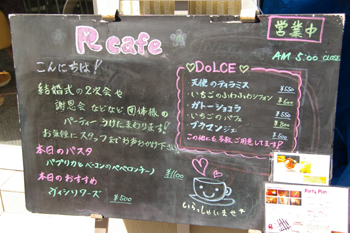 R cafe
営業中
AM 5:00 CLOSE
こんにちは!
結婚式の2次会や
謝恩会などなど団体様の
パーティーうけたまわります!
お気軽にスタッフまでお声かけ下さい
本日のパスタ
パプリカとベーコンのペペロンチーノ
¥1100
本日のおすすめ
ヴィシソワーズ
¥500
DOLCE
天使のティラミス ¥550
いちごのふわふわシフォン ¥600
ガトーショコラ
いちごのパフェ
ブラマンジェ
この他にも多数ご用意してます
いらっしゃいませ
Party Plan